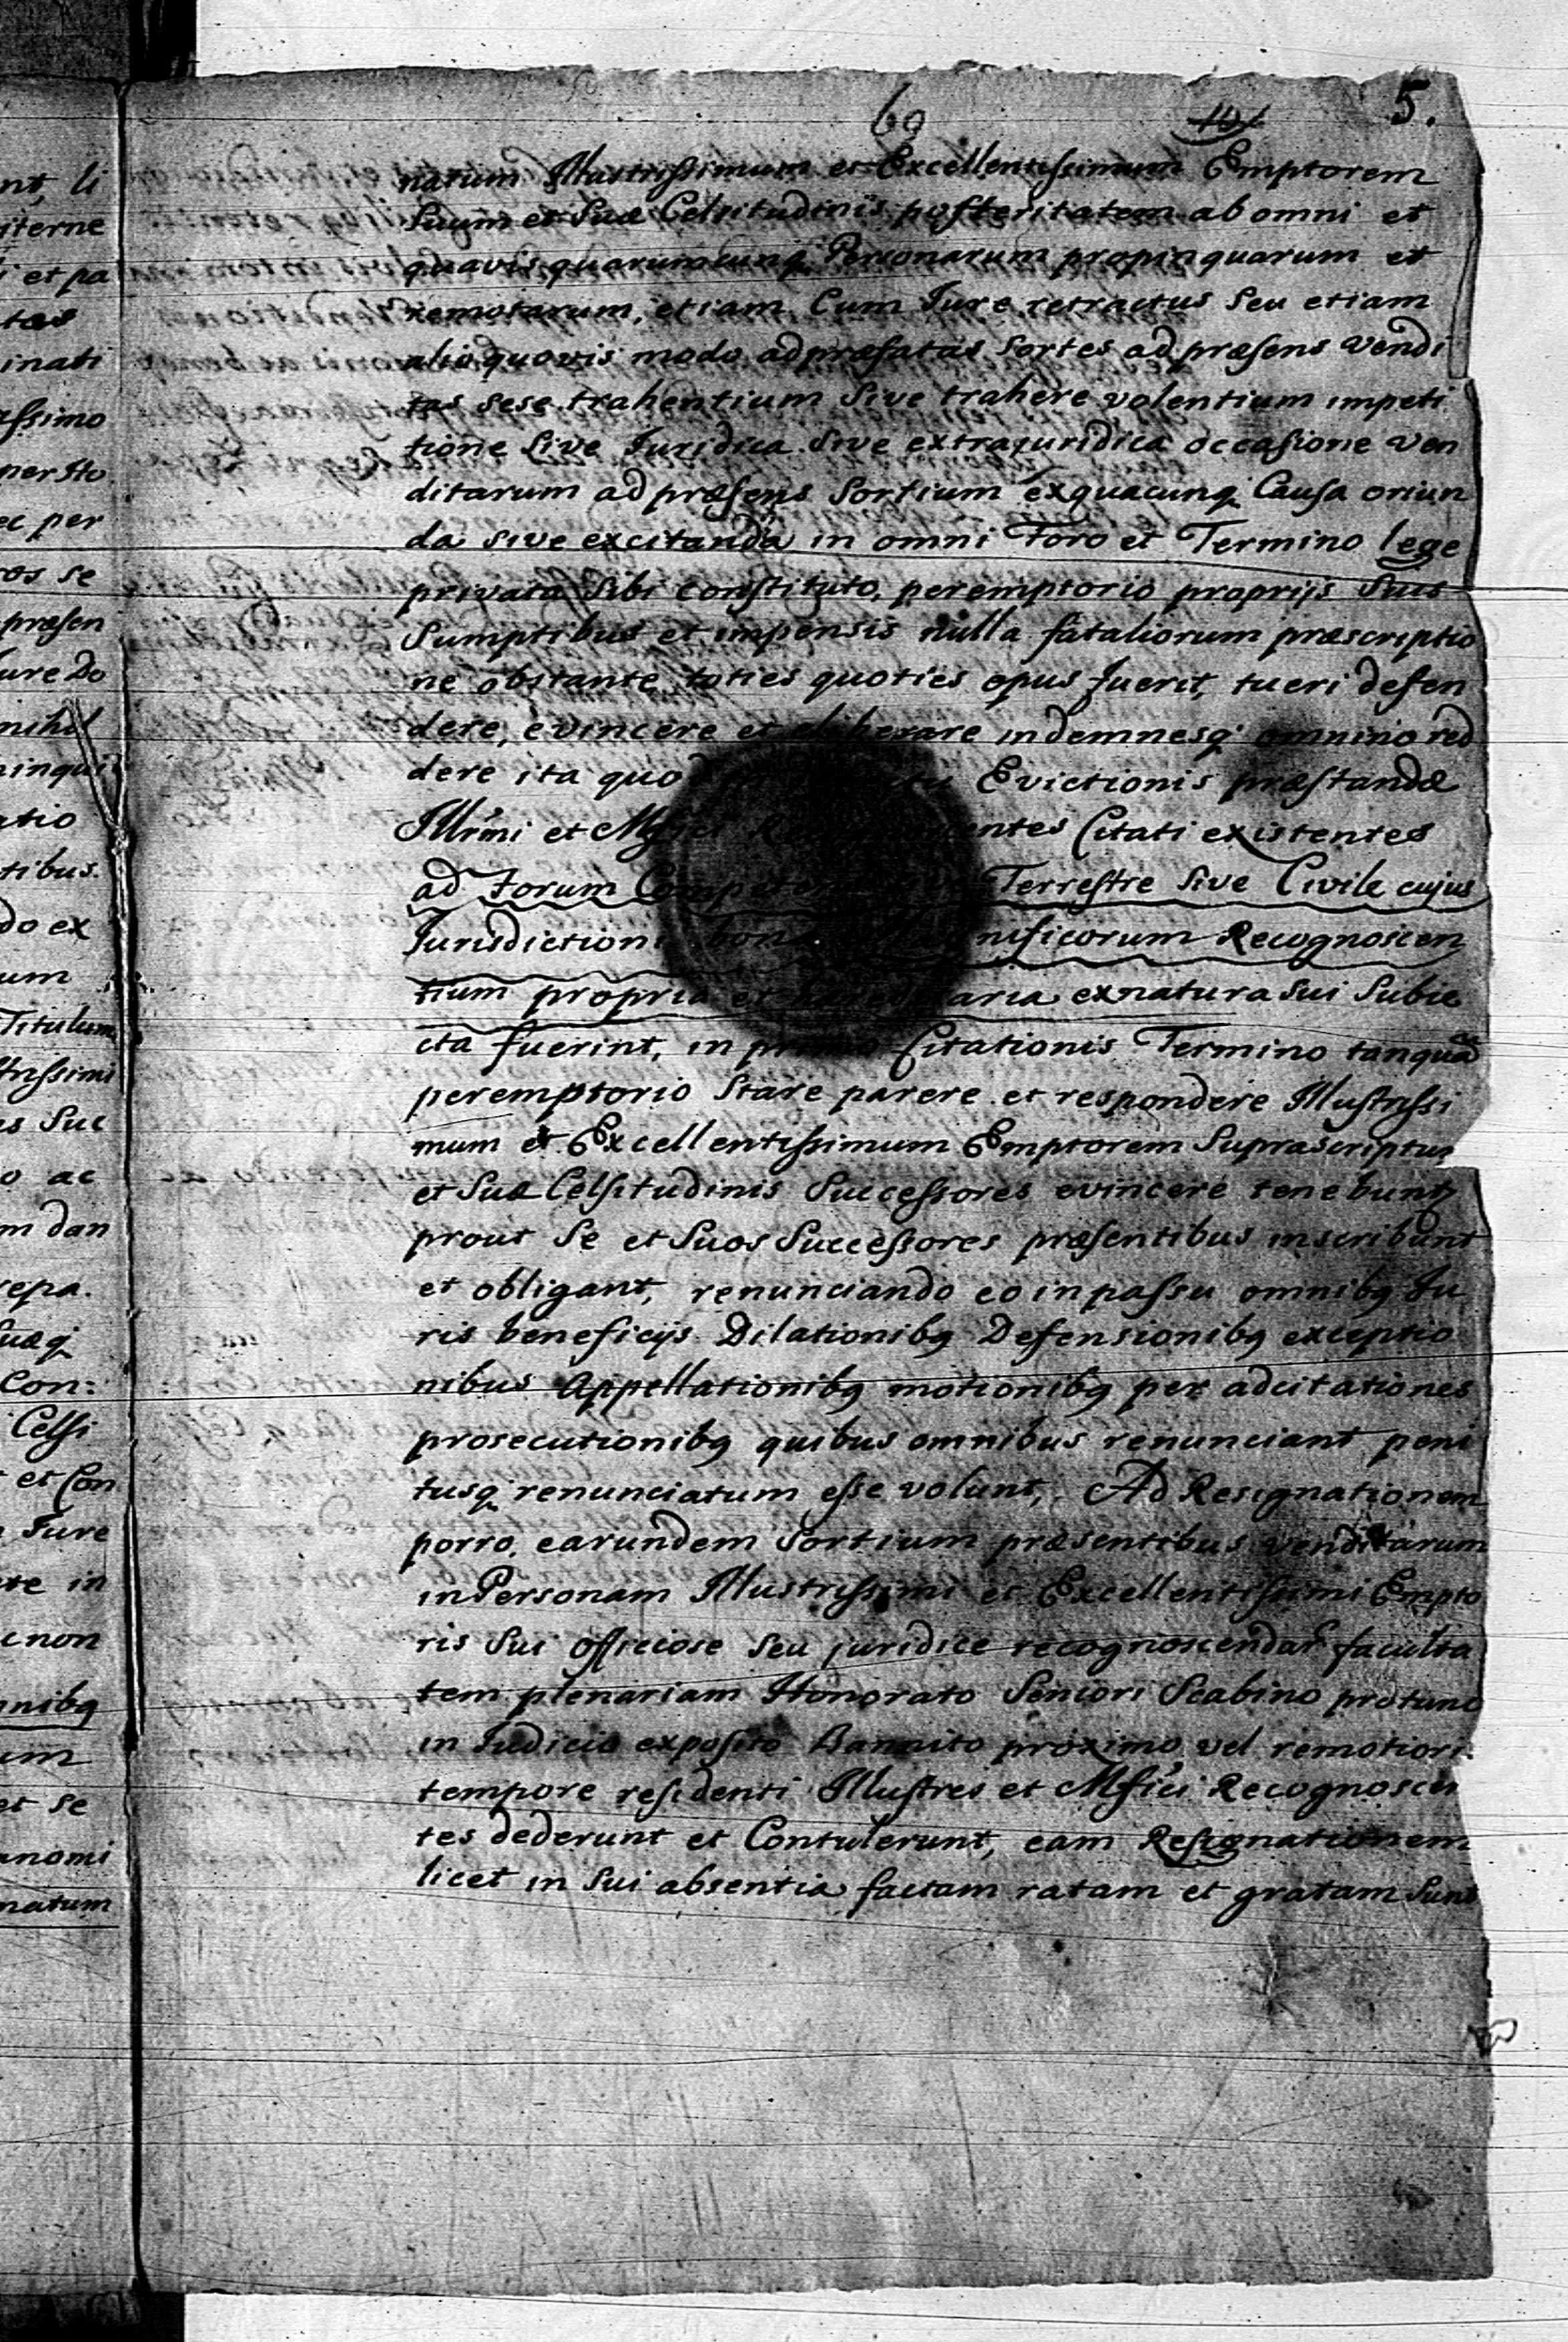 60 5.
natum Illustrissimum et Excellentissimum Emptorem
Suum et Suæ Celsitudinis posteritatem ab omni et
quavis quarumcunq Personarum propinquarum et
remotarum, etiam Cum Jure retractus Seu etiam
alio quovis modo ad præfatas Sortes ad præsens Vendi
tas sese trahentium Sive trahere volentium impeti
tione Sive Juridica Sive extrajuridica occasione Ven
ditarum ad præsens Sortium ex quacunq Causa oriun
da sive excitanda in omni Foro et Termino lege
privata Sibi constituto, peremptorio proprijs Suis
Sumptibus et impensis nulla fataliorum præscriptio
ne obstante, toties quoties opus fuerit, tueri defen
dere, evincere et deliberare indemnesq omnino red
dere ita quod Evictionis præstandæ
Illrmi et Citati existentes
ad Forum Terrestre Sive Civile cujus
Jurisdictioni bona Recognoscen
tium propria et ex natura sui Subie
cta fuerint, in primo Citationis Termino tanquã
peremptorio Stare parere et respondere Illustrissi
mum et Excellentissimum Emptorem Suprascriptum
et Suæ Celsitudinis Successores evincere tenebunt
prout Se et Suos Successores præsentibus inscribunt
et obligant, renunciando eo in passu omnibq Ju
ris beneficijs Dilationibq Defensionibq exceptio
nibus Appellationibq motionibq per adcitationes
prosecutionibq quibus omnibus renunciant peni
tusq renunciatum esse volunt, Ad Resignationem
porro earundem Sortium præsentibus venditarum
in Personam Illustrissimi et Excellentissimi Empto
ris Sui officiose seu juridice recognoscendar faculta
tem plenariam Honorato Seniori Scabino protunc
in Judicio exposito Bannito proximo vel remotiori
tempore residenti Illustres et Mfici Recognoscen
tes dederunt et Contulerunt, eam Resignationem
licet in Sui absentia factam ratam et gratam Sunt